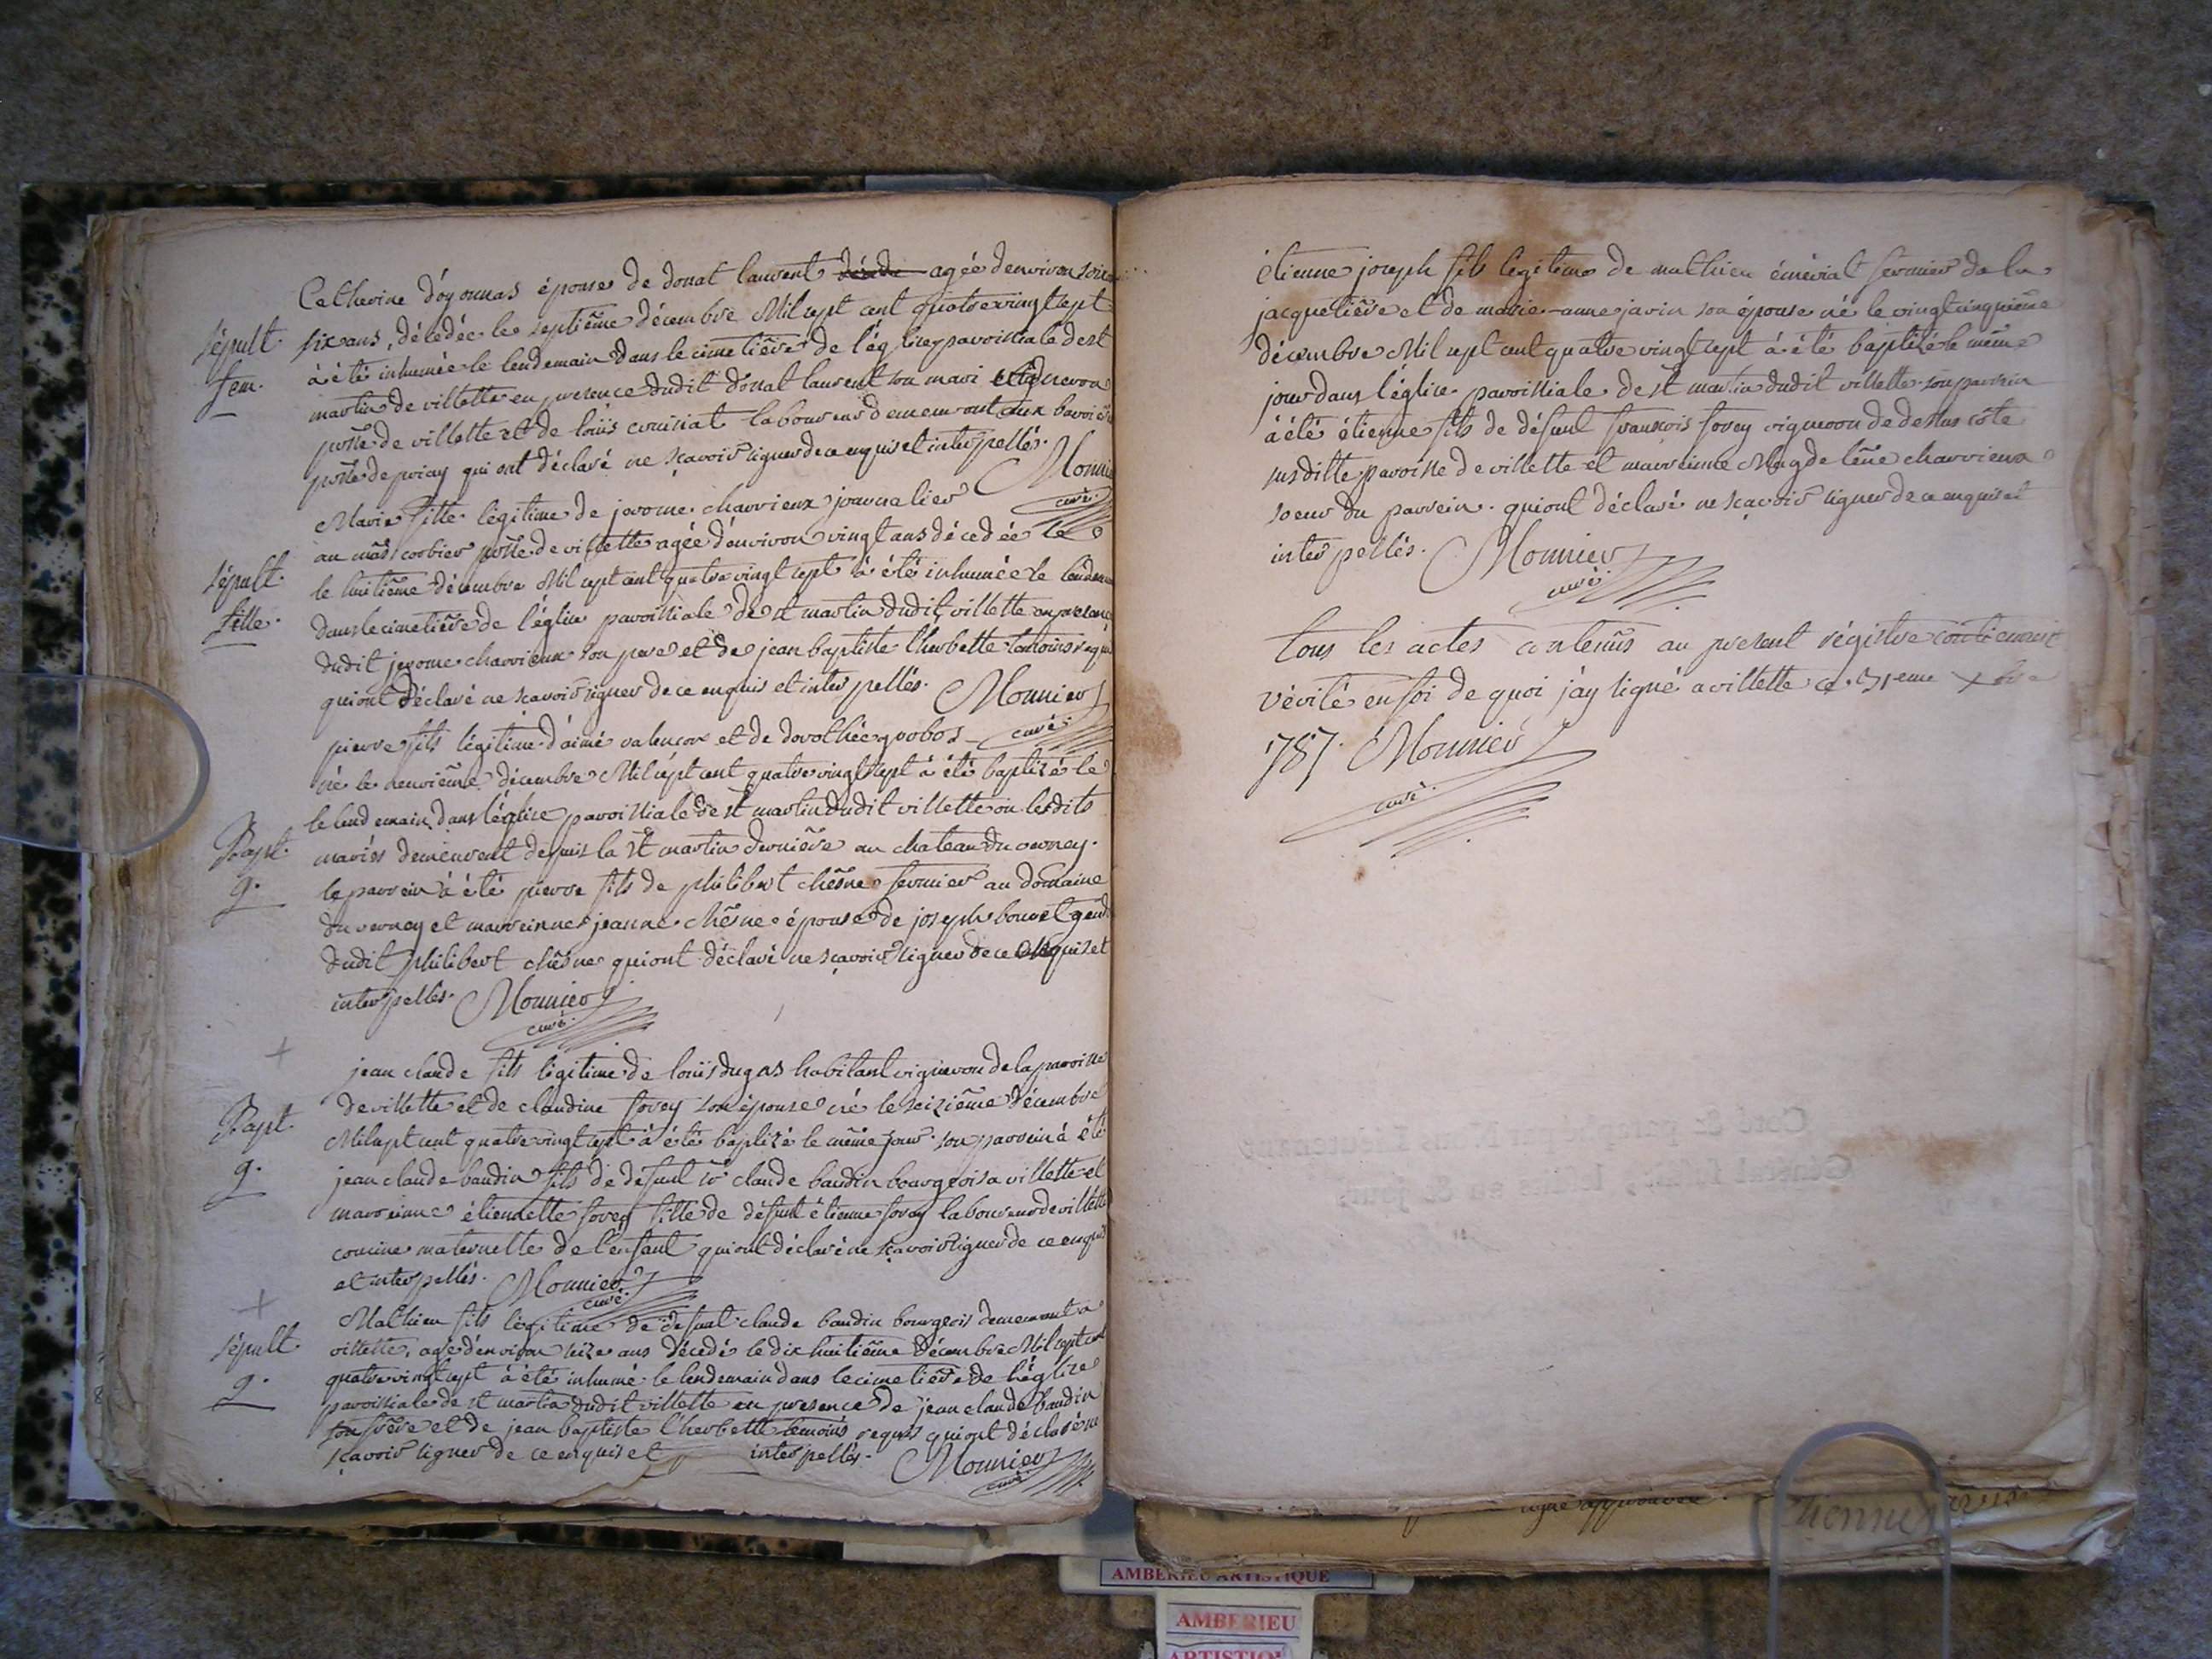 Catherine d'oyonnas épouse de donat laurent décéde agée denviron soix
sépult six ans, décédée le septiême décembre Mil sept cent quatre vingt sept
fem. à été inhumée le lendemain dans le cimetiêre de l'église paroissiale de st
martin de villette en presence dudit donat laurent son mari vigneron
psse de villette et de loüis cruisiat laboureur demeurant aux
psse de priay qui ont déclaré ne sçavoir signer de ce enquis et interpellés. Monnier
curé.
Marie fille légitime de jerome charvieux journalier
au mas corbier psse de villette agée d'environ vingt ans décedée le
sépult. le huitiême décembre Mil sept cent quatre vingt sept à été inhumée le lendemain
fille. dans le cimetiêre de l'église paroissiale de st martin dudit villette en presence
dudit jerome charvieux son pere et de jean baptiste l'herbette temoins requis
qui ont déclaré ne scavoir signer de ce enquis et interpellés. Monnier
curé.
pierre fils légitime d'aimé valençon et de dorothée grobos
né le neuviême décembre Mil sept cent quatre vingt sept à été baptizé le
le lendemain dans l'église paroissiale de st martin dudit villette ou lesdits
Bapt. mariés demeurent depuis la st martin derniêre au chateau du verney.
g. le parrein à été pierre fils de philibert chêsne fermier au domaine
du verney et marreinne jeanne chêsne épouse de joseph bouvet
dudit philibert chêsne qui ont déclaré ne sçavoir signer de ce enquis et
interpellés. Monnier
curé.
jean claude fils légitime de loüis dugas habitant vigneron de la paroisse
de villette et de claudine forey son épouse né le seiziême décembre
Bapt. Mil sept cent quatre vingt sept à été baptizé le même jour. son parrein à été
g. jean claude baudin fils de defunt sr claude baudin bourgeois a villette et
marreinne étiennette forey fille de défunt étienne forey laboureur de villette
cousine maternelle de l'enfant qui ont déclaré ne sçavoir signer de ce enquis
et interpellés. Monnier
curé.
Mathieu fils légitime de defunt claude baudin bourgeois demeurant a
sépult villette, agé d'environ seize ans décedé le dix huitiême décembre Mil sept cent
g. quatre vingt sept à été inhumé le lendemain dans le cimetiêre de l'église
paroissiale de st martin dudit villette en presence de jean claude baudin
son frêre et de jean baptiste l'herbette temoins requis qui ont déclaré ne
sçavoir signer de ce enquis et interpellés. Monnier
curé
étienne joseph fils légitime de mathieu émérial fermier de la
jacquetiêre et de marie-anne javin son épouse né le vingt cinquiême
décembre Mil sept cent quatre vingt sept à été baptizé le même
jour dans l'église paroissiale de st martin dudit villette. son parrein
à été étienne fils de défunt françois forey vigneron de dessus côte
susditte paroisse de villette et marreinne Magdeleine charvieux
soeur du parrein. qui ont déclaré ne sçavoir signer de ce enquis et
interpellés. Monnier
curé.
tous les actes contenus au present régistre contiennent
vérité en foi de quoi j'ay signé a villette ce 31eme xbre
1787. Monnier
curé.
AMBERIEU ARTISTIQUE
AMBERIEU
ARTISTIQUE